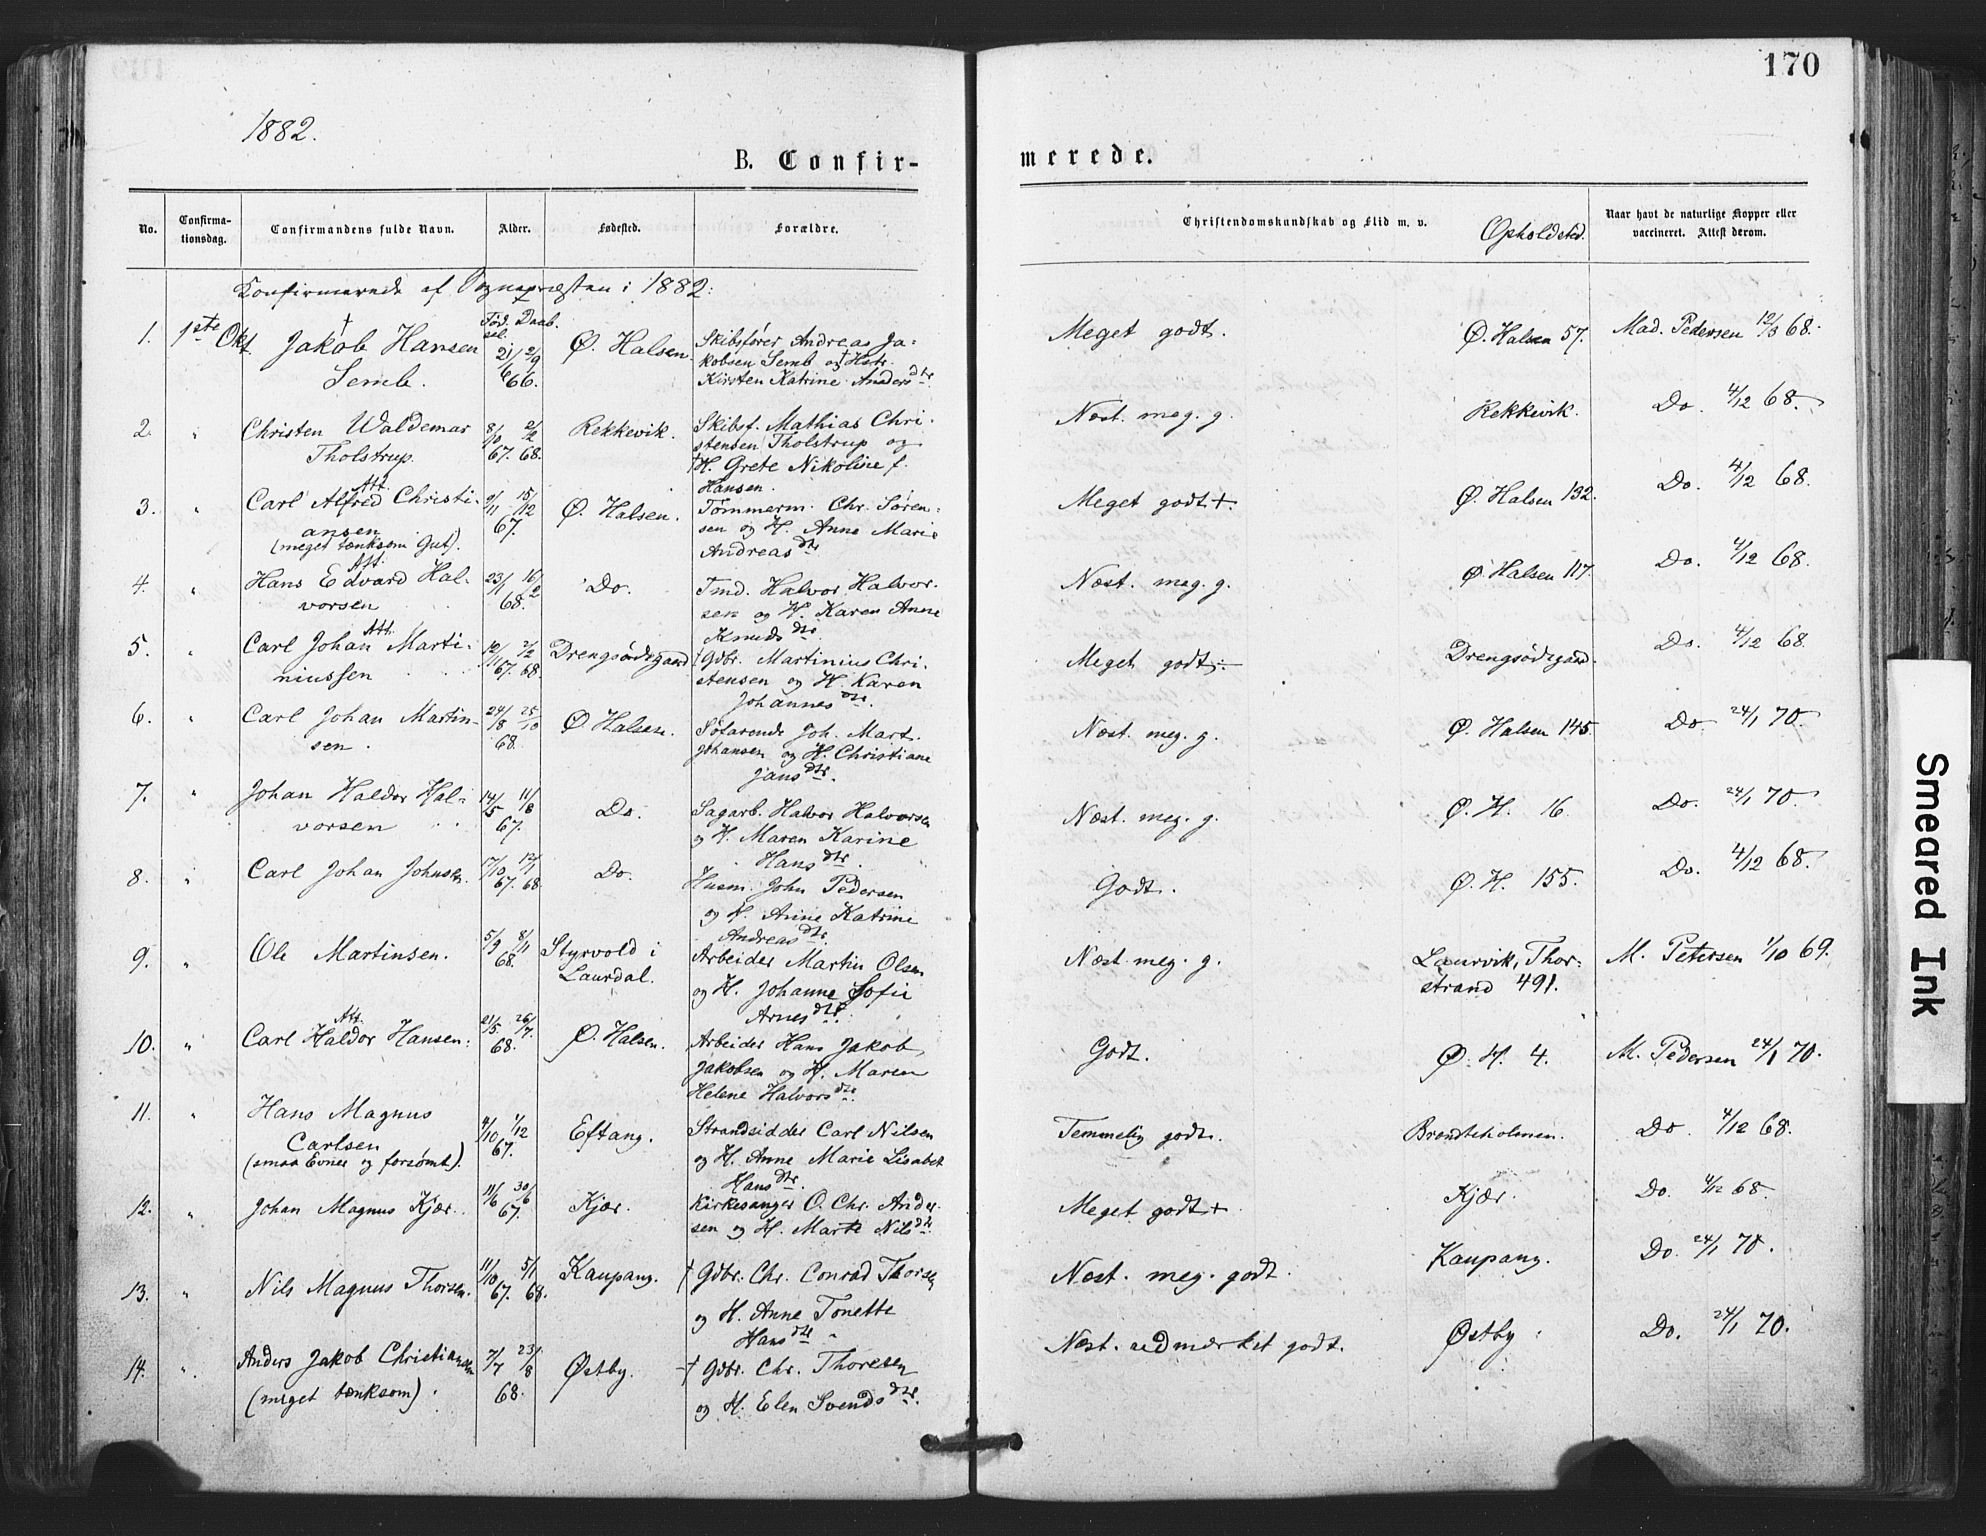 170
1882.
B. Confir-
merede.
No.
Confirma-
tionsdag.
Confirmandens fulde Navn.
Alder.
Fødested.
Forældre.
Christendomskundskab og Flid m. v.
Opholdsted.
Naar havt de naturlige Kopper eller
vaccineret. Attest derom.
Konfirmerede af Sognepræsten i 1882:
Fød- Daab.
sel.
1. 1ste Okt. † Jakob Hansen 21/6 2/9 Ø. Halsen. Skibsfører Andreas Ja- Meget godt. Ø. Halsen 57. Mad. Pedersen 12/3 68.
Semb. 66. kobsen Semb og † Hstr.
Kirsten Katrine Andersdtr.
2. " Christen Waldemar 8/10 2/2 Rekkevik. Skibsf. Mathias Chri- Næst. meg. g. Rekkevik. Do. 4/12 68.
Tholstrup. 67. 68. stensen Tholstrup og
† H. Grete Nikoline f.
Hansen.
Att.
3. " Carl Alfred Christi- 9/11 15/12 Ø. Halsen. Tømmerm. Chr. Søren- Meget godt +. Ø. Halsen 132. Do. 4/12 68.
ansen 67. sen og H. Anne Marie
(meget tænksom Gut). Andreasdtr
Att.
4. " Hans Edvard Hal- 23/1 16/2 Do. Tmd. Halvor Halvor- Næst. meg. g. Ø. Halsen 117. Do. 4/12 68.
vorsen 68. sen og H. Karen Anne
Knudsdtr.
Att.
5. " Carl Johan Marti- 12/11 2/2 Drengsødegaard † Gdbr. Martinius Chri- Meget godt ÷ Drengsødegaard. Do. 4/12 68.
niussen 67. 68. stensen og H. Karen
Johannesdtr.
6. " Carl Johan Martin- 24/8 25/10 Ø Halsen. Søfarende Joh. Mart. Næst. meg. g. Ø. Halsen 145. Do. 24/1 70.
sen. 68. Johansen og H. Christiane
Jansdtr.
7. " Johan Haldor Hal- 14/5 11/8 Do. Sagarb. Halvor Halvorsen Næst. meg. g. Ø. H. 16. Do. 24/1 70.
vorsen 67. og H. Maren Karine
Hansdtr.
8. " Carl Johan Johnsen. 17/10 12/1 Do. Husm. John Pedersen Godt. Ø. H. 155. Do. 4/12 68.
67. 68. og H. Anne Katrine
Andreasdtr.
9. " Ole Martinsen. 5/9 8/11 Styrvold i Arbeider Martin Olsen Næst. meg. g. Laurvik, Thor- M. Petersen 1/10 69.
68. Laurdal. og H. Johanne Sofie strand 491.
Arnesdtr.
Att.
10. " Carl Haldor Hansen. 21/5 26/7 Ø. Halsen. Arbeider Hans Jakob Godt. Ø. H. 4. M. Pedersen 24/1 70.
68. Jakobsen og H. Maren
Helene Halvorsdtr.
11. " Hans Magnus 4/10 1/12 Eftang. Strandsidder Carl Nilsen Temmelig godt. Brandteholmen. Do 4/12 68.
Carlsen 67. og H. Anne Marie Lisabet
(smaa Evner og forsømt). Hansdtr.
12. " Johan Magnus Kjær. 11/6 30/6 Kjær. Kirkesanger O. Chr. Ander- Meget godt + Kjær. Do. 4/12 68.
67. sen og H. Marte Nilsdtr.
13. " Nils Magnus Thorsen. 11/10 5/1 Kaupang. † Gdbr. Chr. Conrad Thorsen Næst. meg. godt. Kaupang. Do. 24/1 70.
67. 68. og H. Anne Tonette
Hansdtr.
14. " Anders Jakob Christiansen 7/7 23/8 Østby. † Gdbr. Chr. Thoresen Næst. udmærket godt. Østby. Do. 24/1 70.
(meget tænksom). 68. og H. Elen Svendsdtr.
Smeared Ink